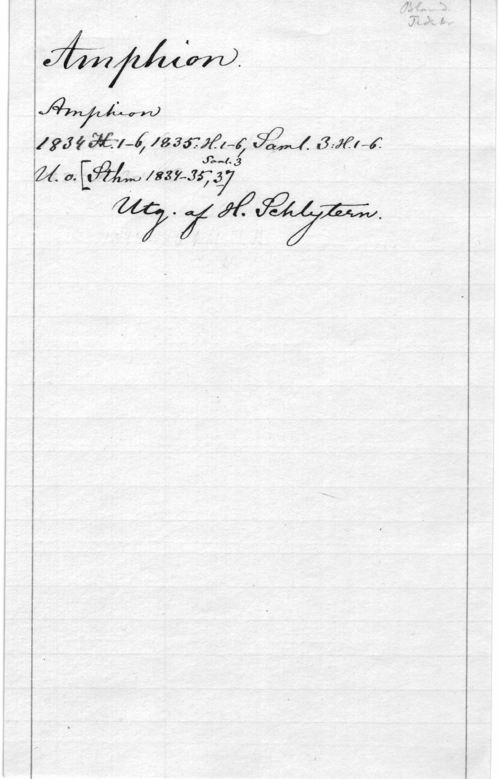 Bland.
Tidskr.
Amphion.
Amphion
1834 H. 1-6, 1835: H. 1-6, Saml. 3: H 1-6.
Saml. 3
U. o. [Sthm 1834-35, 37
Utg. af H. Schlytern.